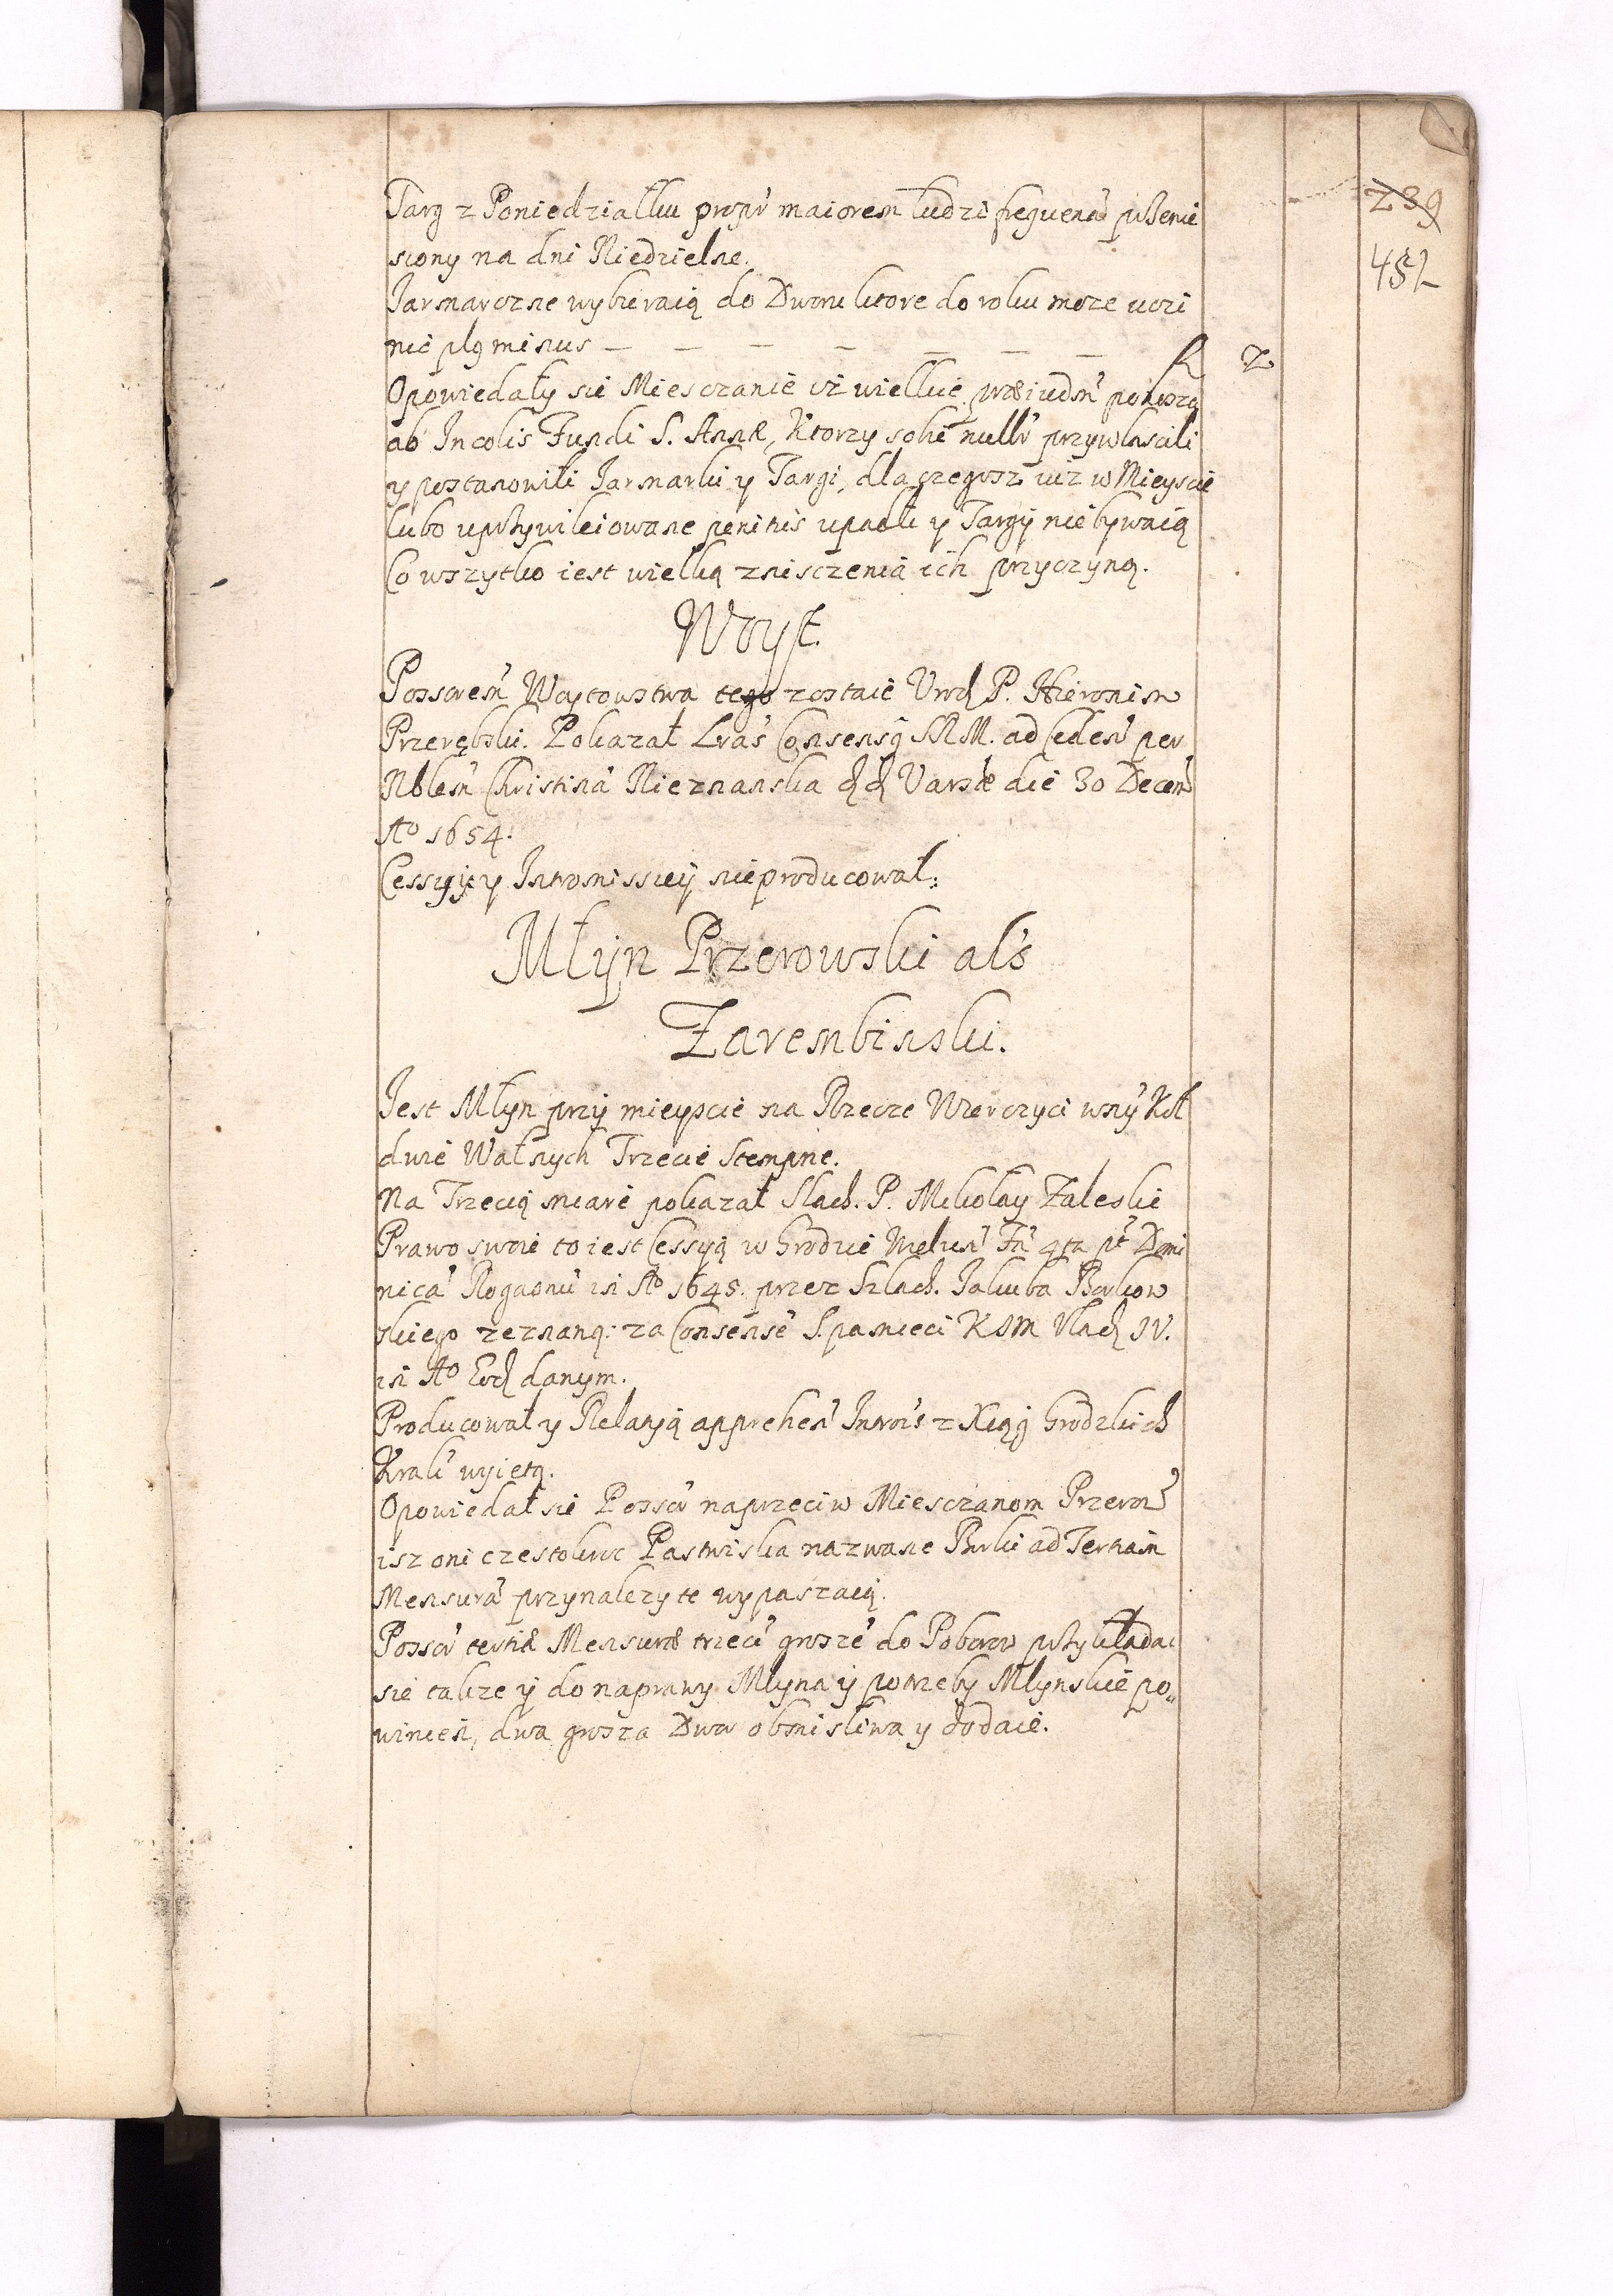 239
452
Targ z Poniedziałku propr maiorem ludzi frequena przenie
siony na dni Niedzielne.
Jarmarczne wybieraią do Dworu ktore do roku może uczi
nic pls minus — — — — — — — f 2
Opowiedały sie Miesczanie iż wielkie præiudm ponoszą
ab Incolis Fundi S. Annæ, Ktorzy sobie nullr przywłascili
y postanowili Jarmarki y Targi, dla czegosz iuż w Mieyscie
lubo uprzywileiowane penitus upadli y Targy nie bywaią
Co wszytko iest wielką znisczenia ich przyczyną.
Woyt.
Possoren Woytowstwa tego zostaie Urod P. Hieronim
Przerębski. Pokazał Lras Consensg SRM. ad Ceden per
Nblem Christina Nieznanska dd Varsæ die 30 Decem
Ao 1654.
Cessyiy y Intromissiey nie producował.
Młyn Przerowski als
Zarembinski.
Jest Młyn przy mieyscie na Rzecze Wierczyci wny Kół
dwie Walnych Trzecie Stempne.
Na Trzecią miare pokazał Slach. P. Mikołay Zaleski
Prawo swoie to iest Cessyą w Grodzie Wielun Fa 4ta pt Domi
nica Rogaonu in Ao 1645. przez Szlach. Jakuba Borkow
skiego zeznaną: za Consense S. pamieci KJM Vlad IV.
in Ao Eod danym.
Producował y Relacyą apprehen Introis z Xiąg Grodzkich
Krak wyietą.
Opowiedał sie Possor naprzeciw Miesczanom Przerow
isz oni czestokroc Pastwiska nazwane Burki ad Tertiam
Mensura przynalezyte wypaszaią.
Possor tertiæ Mensuræ trzeci grosze do Poborow przykładac
sie takze y do naprawy Młyna y potrzeby Młynskie po„
winien, dwa grosza Dwor obmisliwa y dodaie.